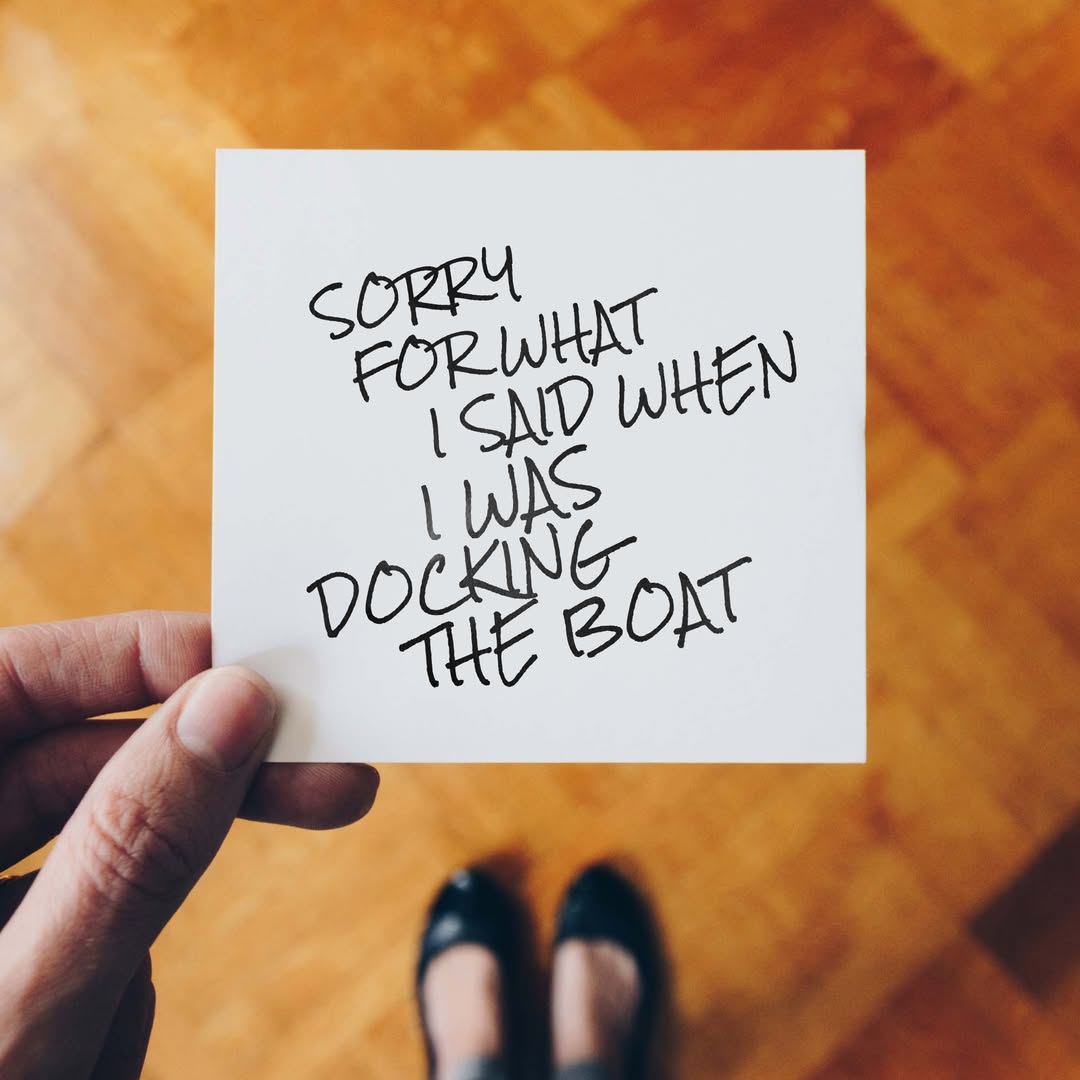 SORRY
FOR WHAT
I SAID WHEN
I WAS
DOCKING
THE BOAT